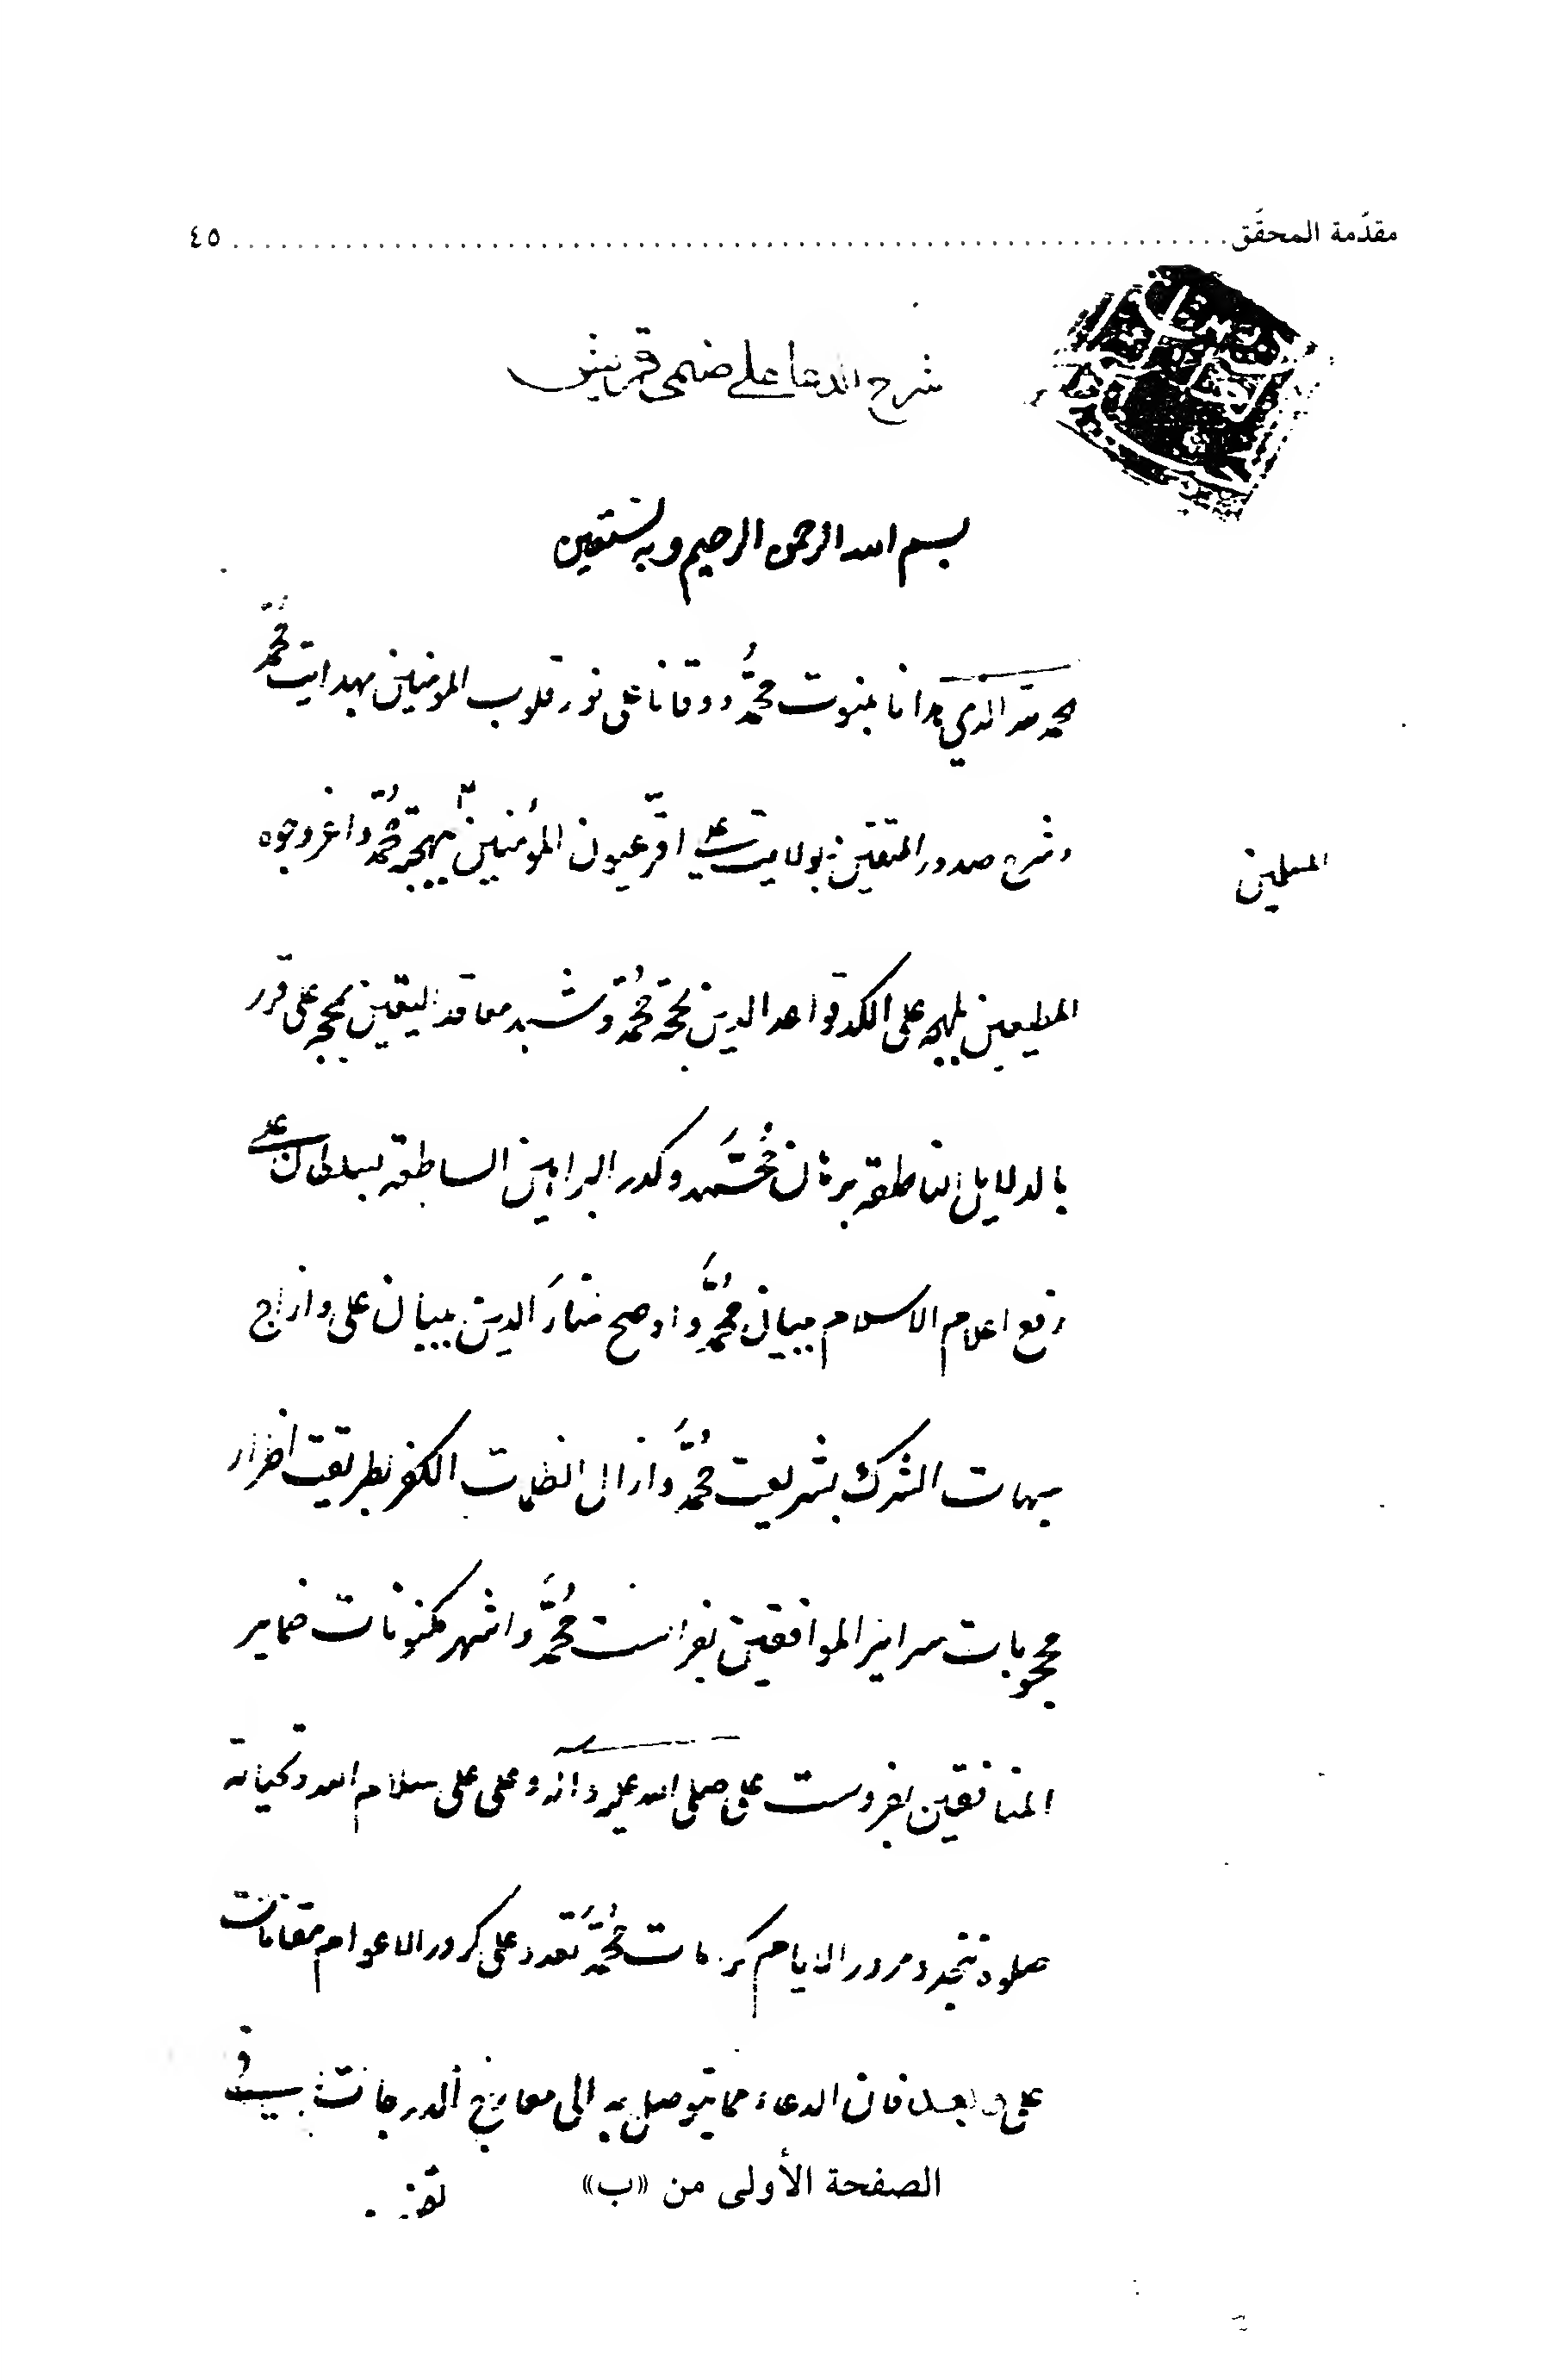 مقدّمة المحقّق ٤٥
شرح الدعا على صنمى قريش
بسم الله الرحمن الرحيم وبه نستعين
الذي هدانا بنبوت محمد ووقانا على نور قلوب المومنين بهدايت محمد
وشرح صدور المتقين بولايت على اقر عيون المؤمنين بهجة محمد واغر وجوه
المسلمين
المطيعين على اكد قواعد الدين بحجة محمد وشيد معاقد اليقين على قرر
بالدلايل الناطقه برهان محمد وكدر البراهين الساطعه لسلطان على
رفع اعلام الاسلام ببيان محمد واوضح منار الدين ببيان على وازاح
الشرك بشريعت محمد وازال الظلمات الكفر بطريقت
محجوبات سراير الموافقين بفراست محمد واشهر مكنونات ضماير
المنافقين على صلى الله عليه واله وعلى على سلام الله وتحياته
صلوة تتجدد مرور الايام كرامات محمد على كرور الاعوام مقامات
على وبعد فان الدعاء مما يتوصل به الى معارج الدرجات
الصفحة الأولى من «ب»